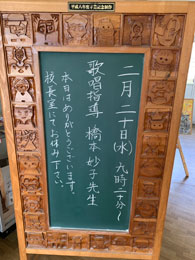 平成八年度卒業記念制作
二月二十日(水) 九時二十分〜
歌唱指導 橋本妙子先生
本日はありがとうございます。
校長室にてお休み下さい。